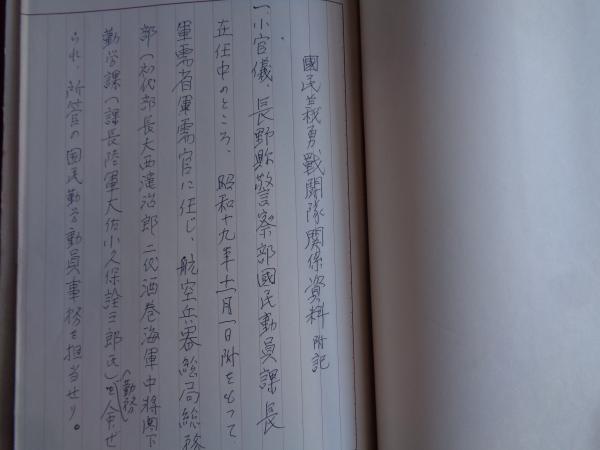 國民義勇戰闘隊関係資料 附記
一、小官儀、長野縣警察部國民動員課長
在任中のところ、昭和十九年十一月一日附をもつて
軍需省軍需官に任じ、航空兵器総局総務
部(初代部長大西瀧治郎 二代酒巻海軍中将閣下)
勤労課(課長陸軍大佐小久保詮三郎氏)勤務を命ぜ
られ、所管の国民勤労動員事務を担当せり。